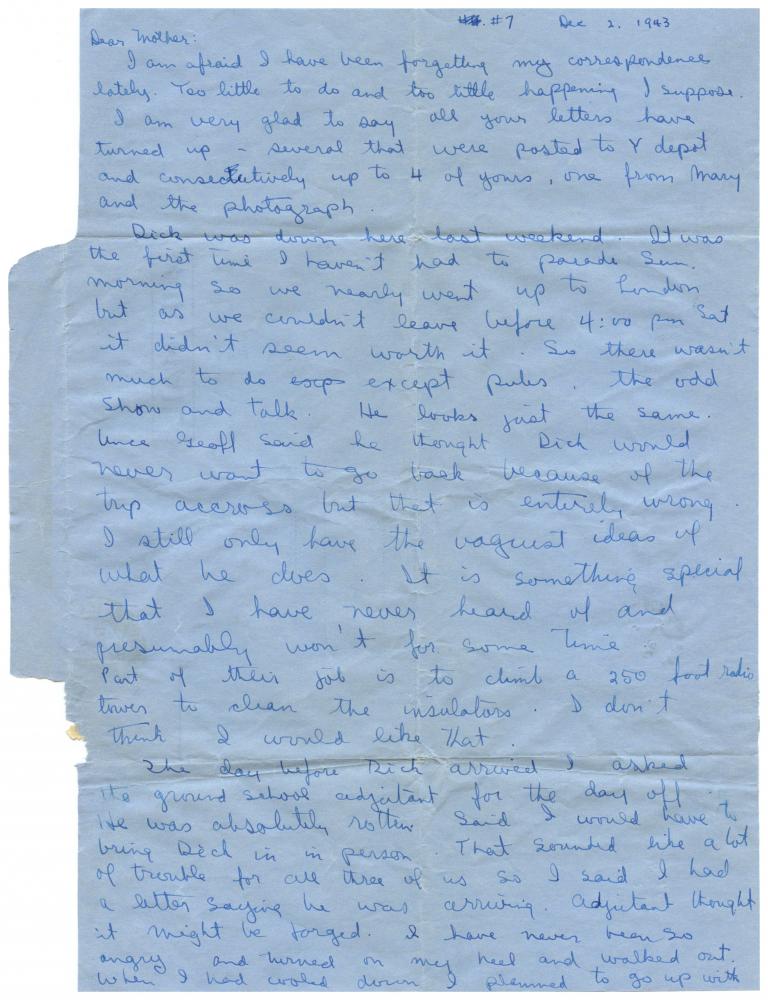 #7 Dec 2, 1943
Dear Mother:
I am afraid I have been forgetting my correspondence
lately. Too little to do and too little happening I suppose.
I am very glad to say all your letters have
turned up - several that were posted to Y depot
and consecutively up to 4 of yours, one from Mary
and the photograph.
Dick was down here last weekend. It was
the first time I haven't had to parade Sun.
morning so we nearly went up to London
but as we couldn't leave before 4:00 pm Sat
it didn't seem worth it. So there wasn't
much to do except pubs, the odd
show and talk. He looks just the same.
Unce Geoff said he thought Dick would
never want to go back because of the
trip accross but that is entirely wrong.
I still only have the vaguest ideas of
what he does. It is something special
that I have never heard of and
presumably won't for some time.
Part of their job is to climb a 250 foot radio
tower to clean the insulators. I don't
think I would like that.
The day before Dick arrived I asked
the ground school adjutant for the day off.
He was absolutely rotten. Said I would have to
bring Dick in in person. That sounded like a lot
of trouble for all three of us so I said I had
a letter saying he was arriving. Adjutant thought
it might be forged. I have never been so
angry and turned on my heel and walked out.
When I had cooled down I planned to go up with